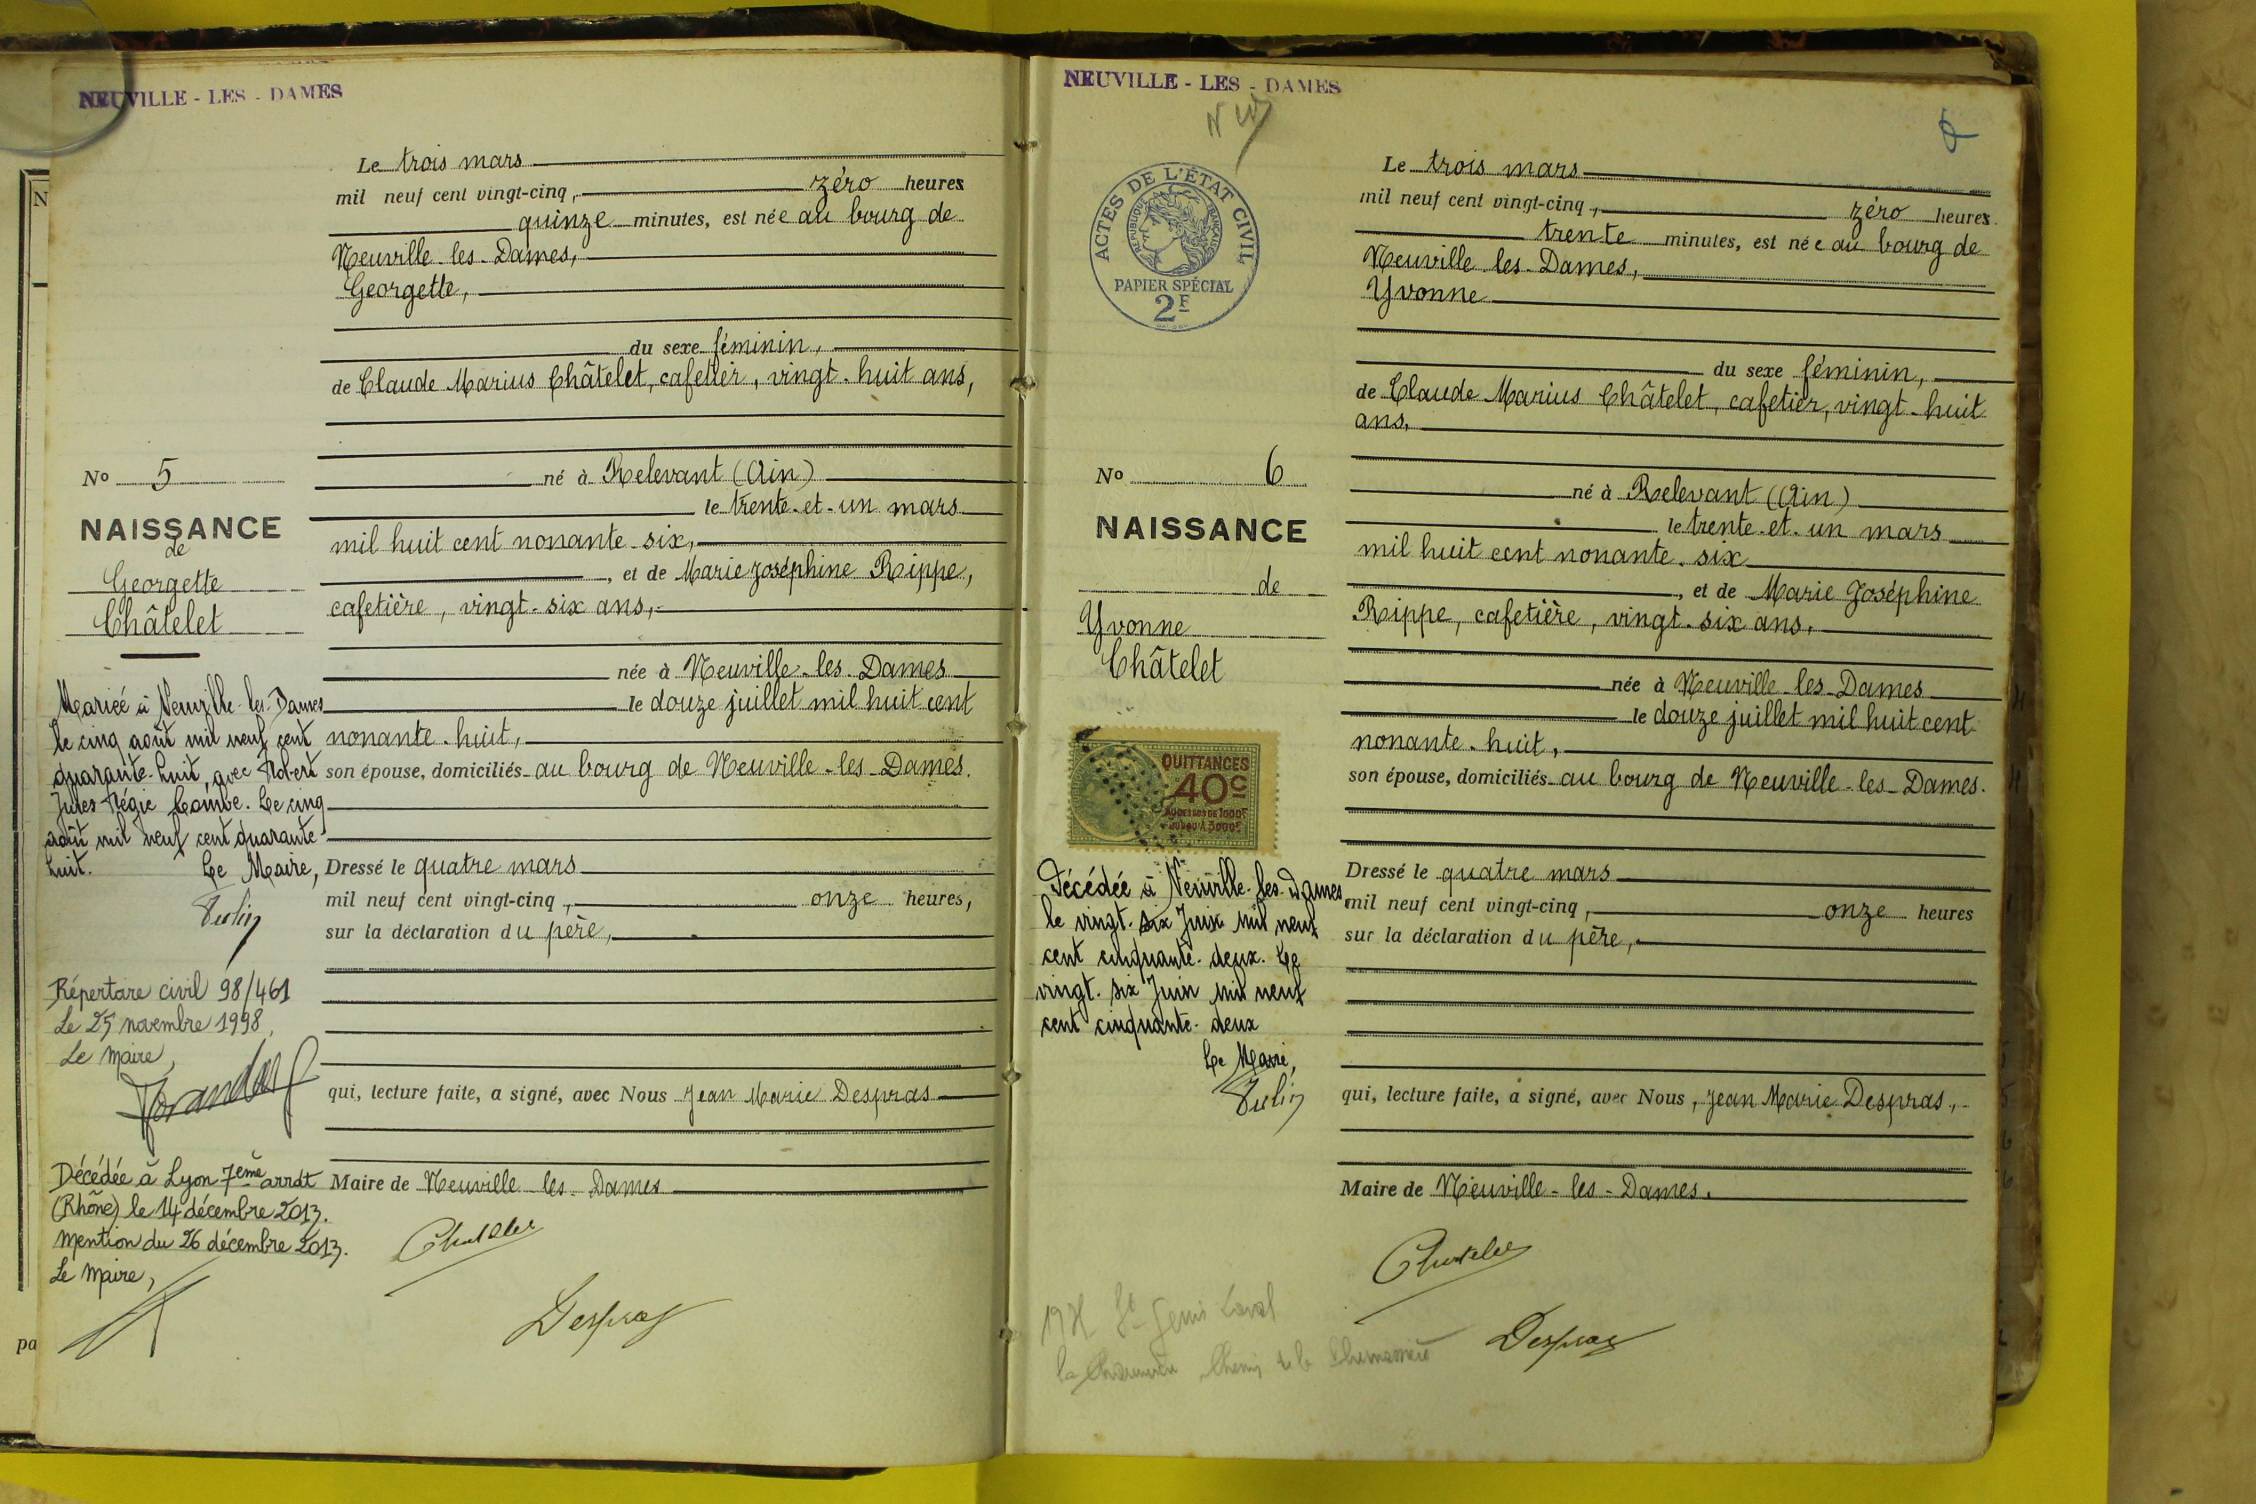 NEUVILLE - LES - DAMES
Le trois mars
mil neuf cent vingt-cinq, zéro heures
quinze minutes, est née au bourg de
Neuville-les-Dames,
Georgette,
du sexe féminin,
de Claude Marius Châtelet, cafetier, vingt-huit ans,
né à Relevant (Ain)
le trente-et-un mars
mil huit cent nonante-six,
, et de Marie Joséphine Rippe,
cafetière, vingt-six ans,
née à Neuville-les-Dames
le douze juillet mil huit cent
nonante-huit,
son épouse, domiciliés au bourg de Neuville-les-Dames.
Dressé le quatre mars
mil neuf cent vingt-cinq, onze heures,
sur la déclaration du père,
qui, lecture faite, a signé, avec Nous Jean Marie Despras
Maire de Neuville-les-Dames
Despras
No 5
NAISSANCE
de
Georgette
Châtelet
Mariée à Neuville-les-Dames
le cinq août mil neuf cent
quarante-huit, avec Robert
Jules Régie Combe. Le cinq
août mil neuf cent quarante-
huit.
Le Maire,
Répertoire civil 98/461
Le 25 novembre 1998,
Le Maire,
Décédée à Lyon 7ème arrdt
(Rhône) le 14 décembre 2013.
Mention du 26 décembre 2013.
Le Maire,
N
pa
NEUVILLE - LES - DAMES
ACTES DE L'ÉTAT CIVIL
RÉPUBLIQUE FRANÇAISE
PAPIER SPÉCIAL
2F
Le trois mars
mil neuf cent vingt-cinq, zéro heures
trente minutes, est née au bourg de
Neuville-les-Dames,
Yvonne
du sexe féminin,
de Claude Marius Châtelet, cafetier, vingt-huit
ans,
né à Relevant (Ain)
le trente-et-un mars
mil huit cent nonante-six
, et de Marie Joséphine
Rippe, cafetière, vingt-six ans,
née à Neuville-les-Dames
le douze juillet mil huit cent
nonante-huit,
son épouse, domiciliés au bourg de Neuville-les-Dames.
Dressé le quatre mars
mil neuf cent vingt-cinq, onze heures
sur la déclaration du père,
qui, lecture faite, a signé, avec Nous, Jean Marie Despras,
Maire de Neuville-les-Dames.
Despras
No 6
NAISSANCE
de
Yvonne
Châtelet
QUITTANCES
40c
AU DESSUS DE 1000F
JUSQU'À 3000F
Décédée à Neuville-les-Dames
le vingt-six Juin mil neuf
cent cinquante-deux. Le
vingt-six Juin mil neuf
cent cinquante-deux
Le Maire,
St Genis Laval